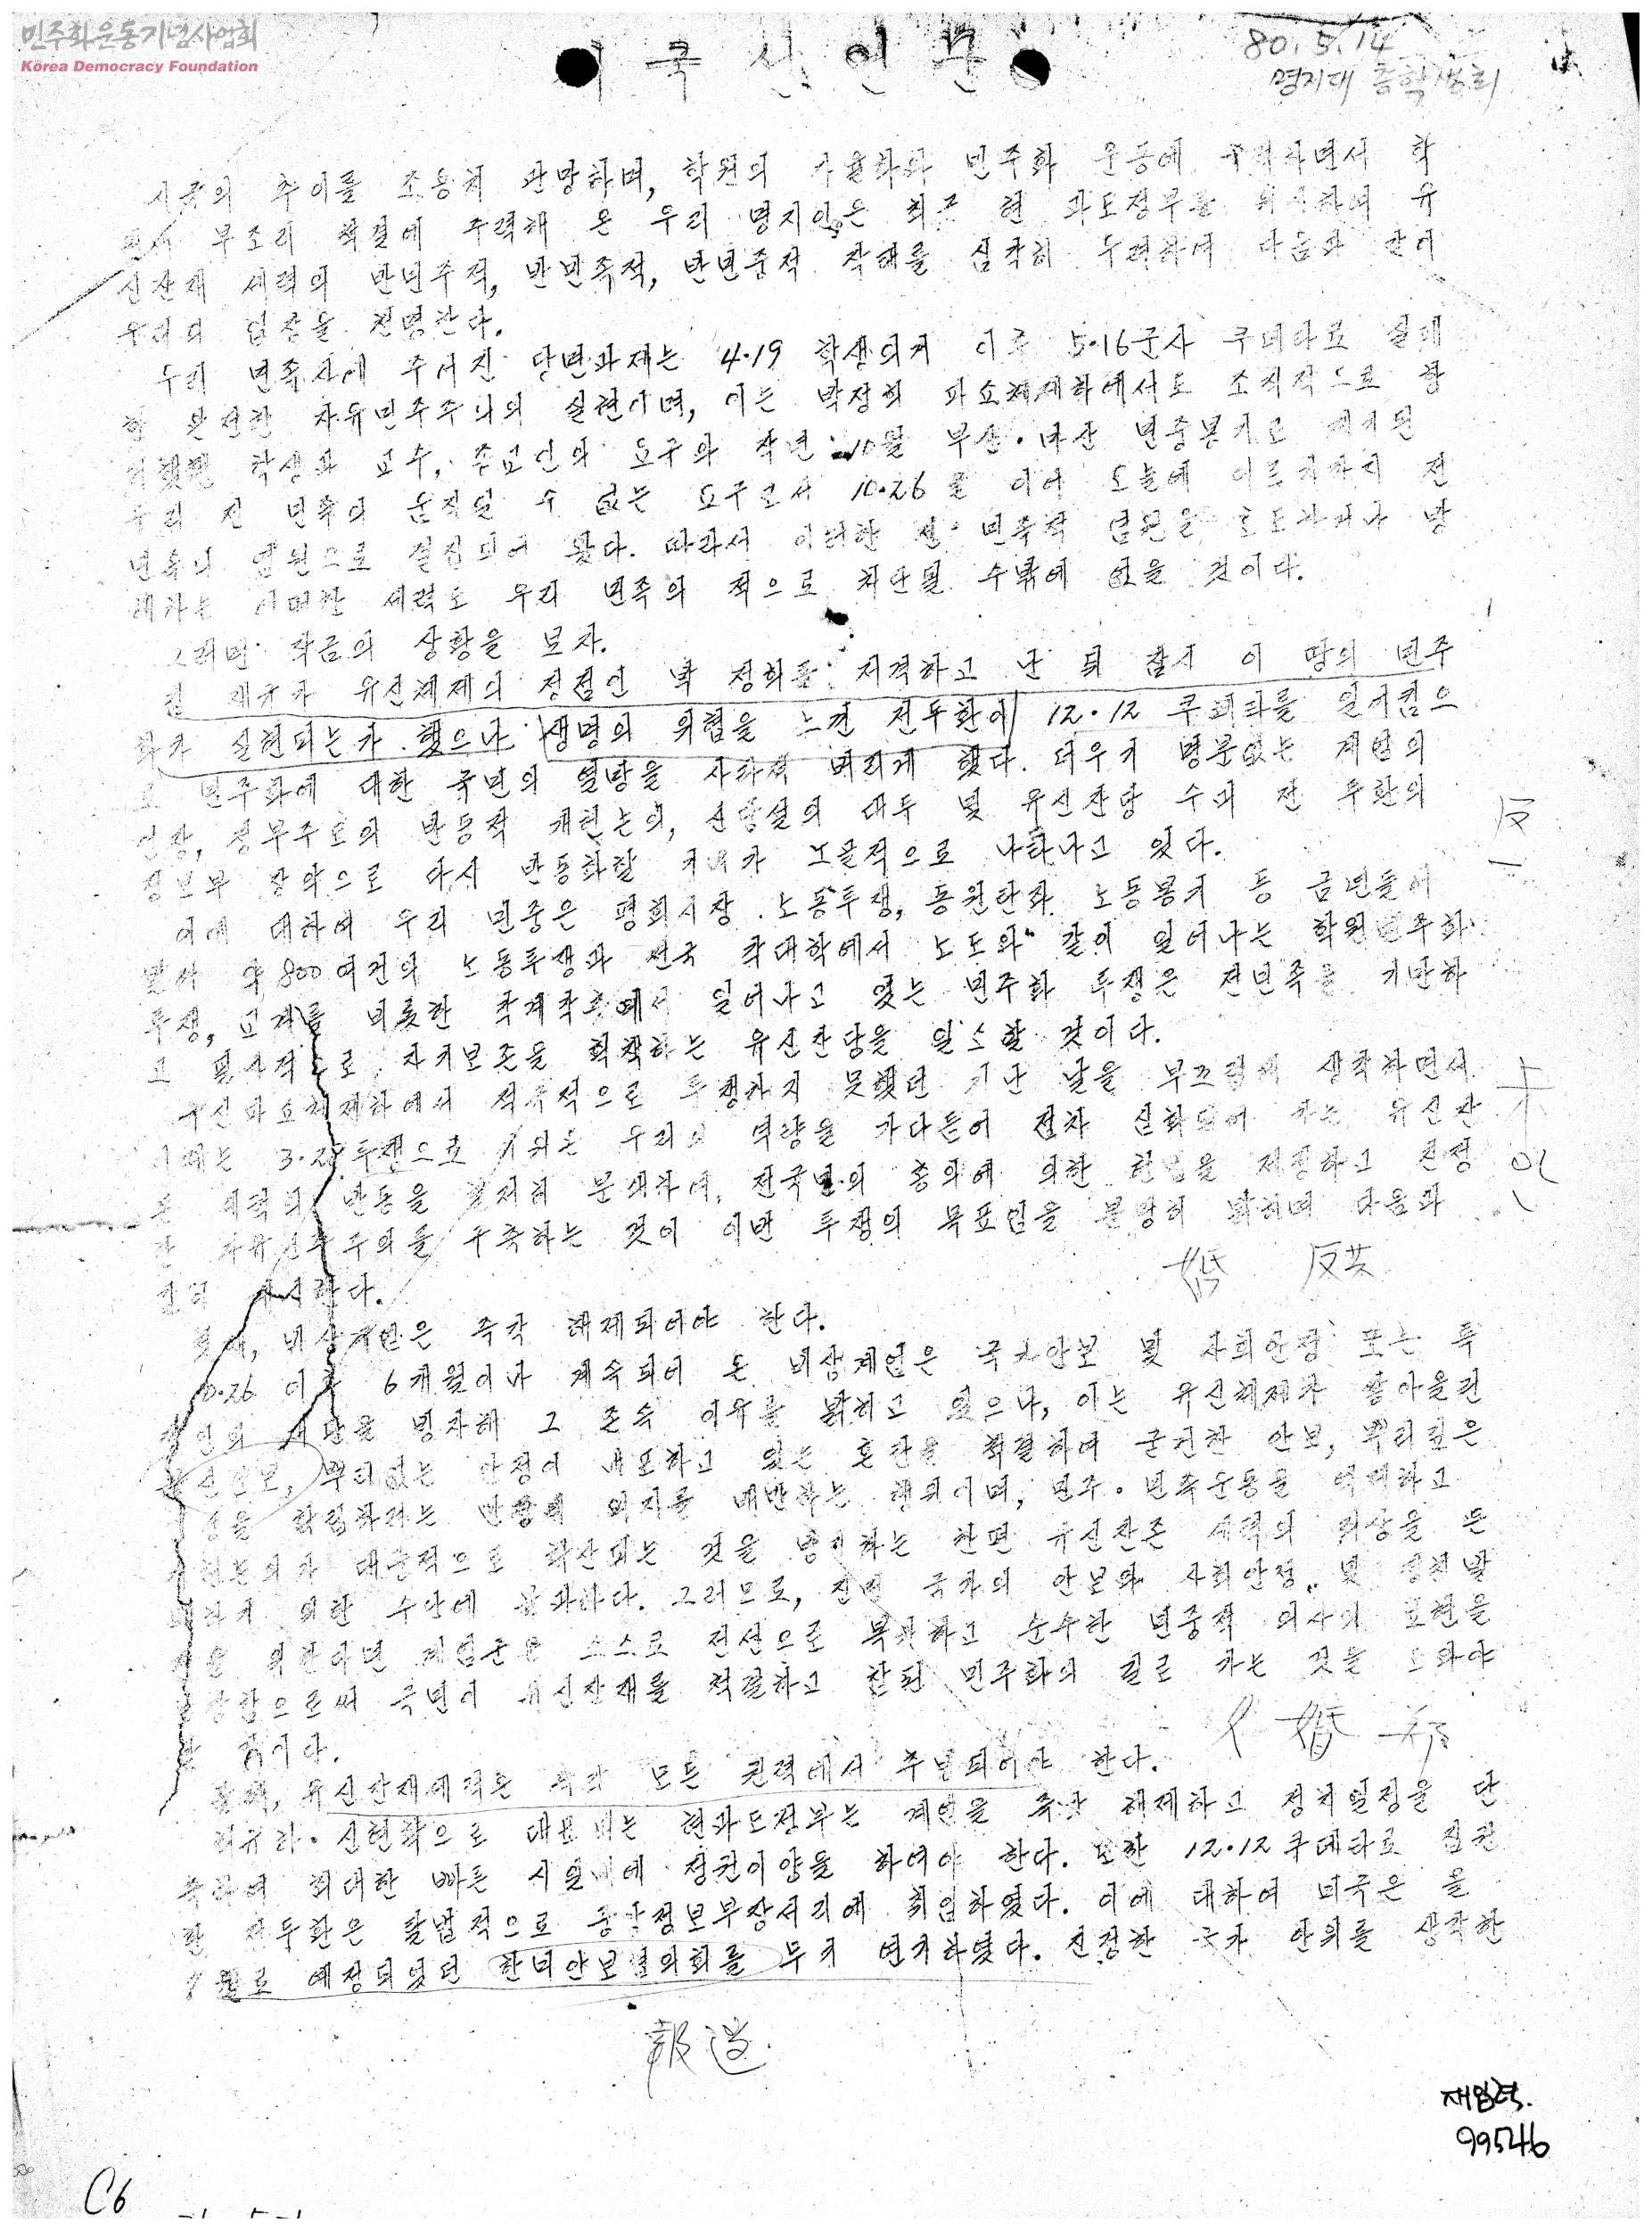 민주화운동기념사업회
Korea Democracy Foundation
국 선 언 문
80. 5. 14
명지대 총학생회
시국의 추이를 조용히 관망하며, 학원의 자율화와 민주화 운동에 주력하면서 학
부조리 척결에 주력해 온 우리 명지인은 최근 현 과도정부를 위시하여 유
신잔재 세력의 반민주적, 반민족적, 반민중적 작태를 심각히 우려하며 다음과 같이
우리의 입장을 천명한다.
우리 민족사에 주어진 당면과제는 4·19 학생의거 이후 5·16군사 쿠데타로 실패
한 완전한 자유민주주의의 실현이며, 이는 박정희 파쇼체제하에서도 조직적으로 항
거했던 학생과 교수, 종교인의 요구와 작년 10월 부산·마산 민중봉기로 제기된
우리 전 민족의 움직일 수 없는 요구로서 10·26을 이어 오늘에 이르기까지 전
민족의 염원으로 결집되어 왔다. 따라서 이러한 전 민족적 염원을 호도하거나 방
해하는 어떠한 세력도 우리 민족의 적으로 처단될 수밖에 없을 것이다.
그러면 작금의 상황을 보자.
김 재규가 유신체제의 정점인 박 정희를 저격하고 난 뒤 잠시 이 땅의 민주
화가 실현되는가 했으나 생명의 위협을 느낀 전두환이 12·12 쿠데타를 일으킴으
로 민주화에 대한 국민의 열망을 사라져 버리게 했다. 더우기 명분없는 계엄의
연장, 정부주도의 반동적 개헌논의, 신당설의 대두 및 유신잔당 수괴 전 두환의
정보부 장악으로 다시 반동화할 기미가 노골적으로 나타나고 있다.
이에 대하여 우리 민중은 평화시장 노동투쟁, 동원탄좌 노동봉기 등 금년들어
발생 약 800여건의 노동투쟁과 전국 각대학에서 노도와 같이 일어나는 학원민주화
투쟁, 교계를 비롯한 각계각층에서 일어나고 있는 민주화 투쟁은 전민족을 기만하
고 필사적으로 자기보존을 획책하는 유신잔당을 일소할 것이다.
유신파쇼체제하에서 적극적으로 투쟁하지 못했던 지난 날을 부끄럽게 생각하면서
우리의 역량을 가다듬어 점차 심화되어 가는 유신잔
존 세력의 반동을 철저히 분쇄하여, 전국민의 총의에 의한 헌법을 제정하고 진정
한 자유민주주의를 구축하는 것이 이번 투쟁의 목표임을 분명히 밝히며 다음과
같이 제시한다.
첫째, 비상계엄은 즉각 해제되어야 한다.
10·26 이후 6개월이나 계속되어 온 비상계엄은 국가안보 및 사회안정 또는 북
괴의 남침을 빙자해 그 존속 이유를 밝히고 있으나, 이는 유신체제가 쌓아올린
뿌리없는 안정이 내포하고 있는 혼란을 척결하며 굳건한 안보, 뿌리깊은
안정을 확립하려는 민중의 의지를 배반하는 행위이며, 민주·민족운동을 억제하고
개헌논의가 대중적으로 확산되는 것을 방지하는 한편 유신잔존 세력의 위상을 은
폐하기 위한 수단에 불과하다. 그러므로, 진정 국가의 안보와 사회안정 및 정치발
전을 위한다면 계엄군은 스스로 전선으로 복귀하고 순수한 민중적 의사의 표현을
보장함으로써 국민이 유신잔재를 척결하고 참된 민주화의 길로 가는 것을 도와야
할 것이다.
둘째, 유신잔재세력은 즉각 모든 권력에서 추방되어야 한다.
최규하·신현확으로 대표되는 현과도정부는 계엄을 즉각 해제하고 정치일정을 단
축하여 최대한 빠른 시일내에 정권이양을 하여야 한다. 또한 12·12 쿠데타로 집권
한 전두환은 탈법적으로 중앙정보부장서리에 취임하였다. 이에 대하여 미국은 올
7월로 예정되었던 한미안보협의회를 무기 연기하였다. 진정한 국가 안위를 생각한
反
婚 反共
報道
재입력.
99546
C6